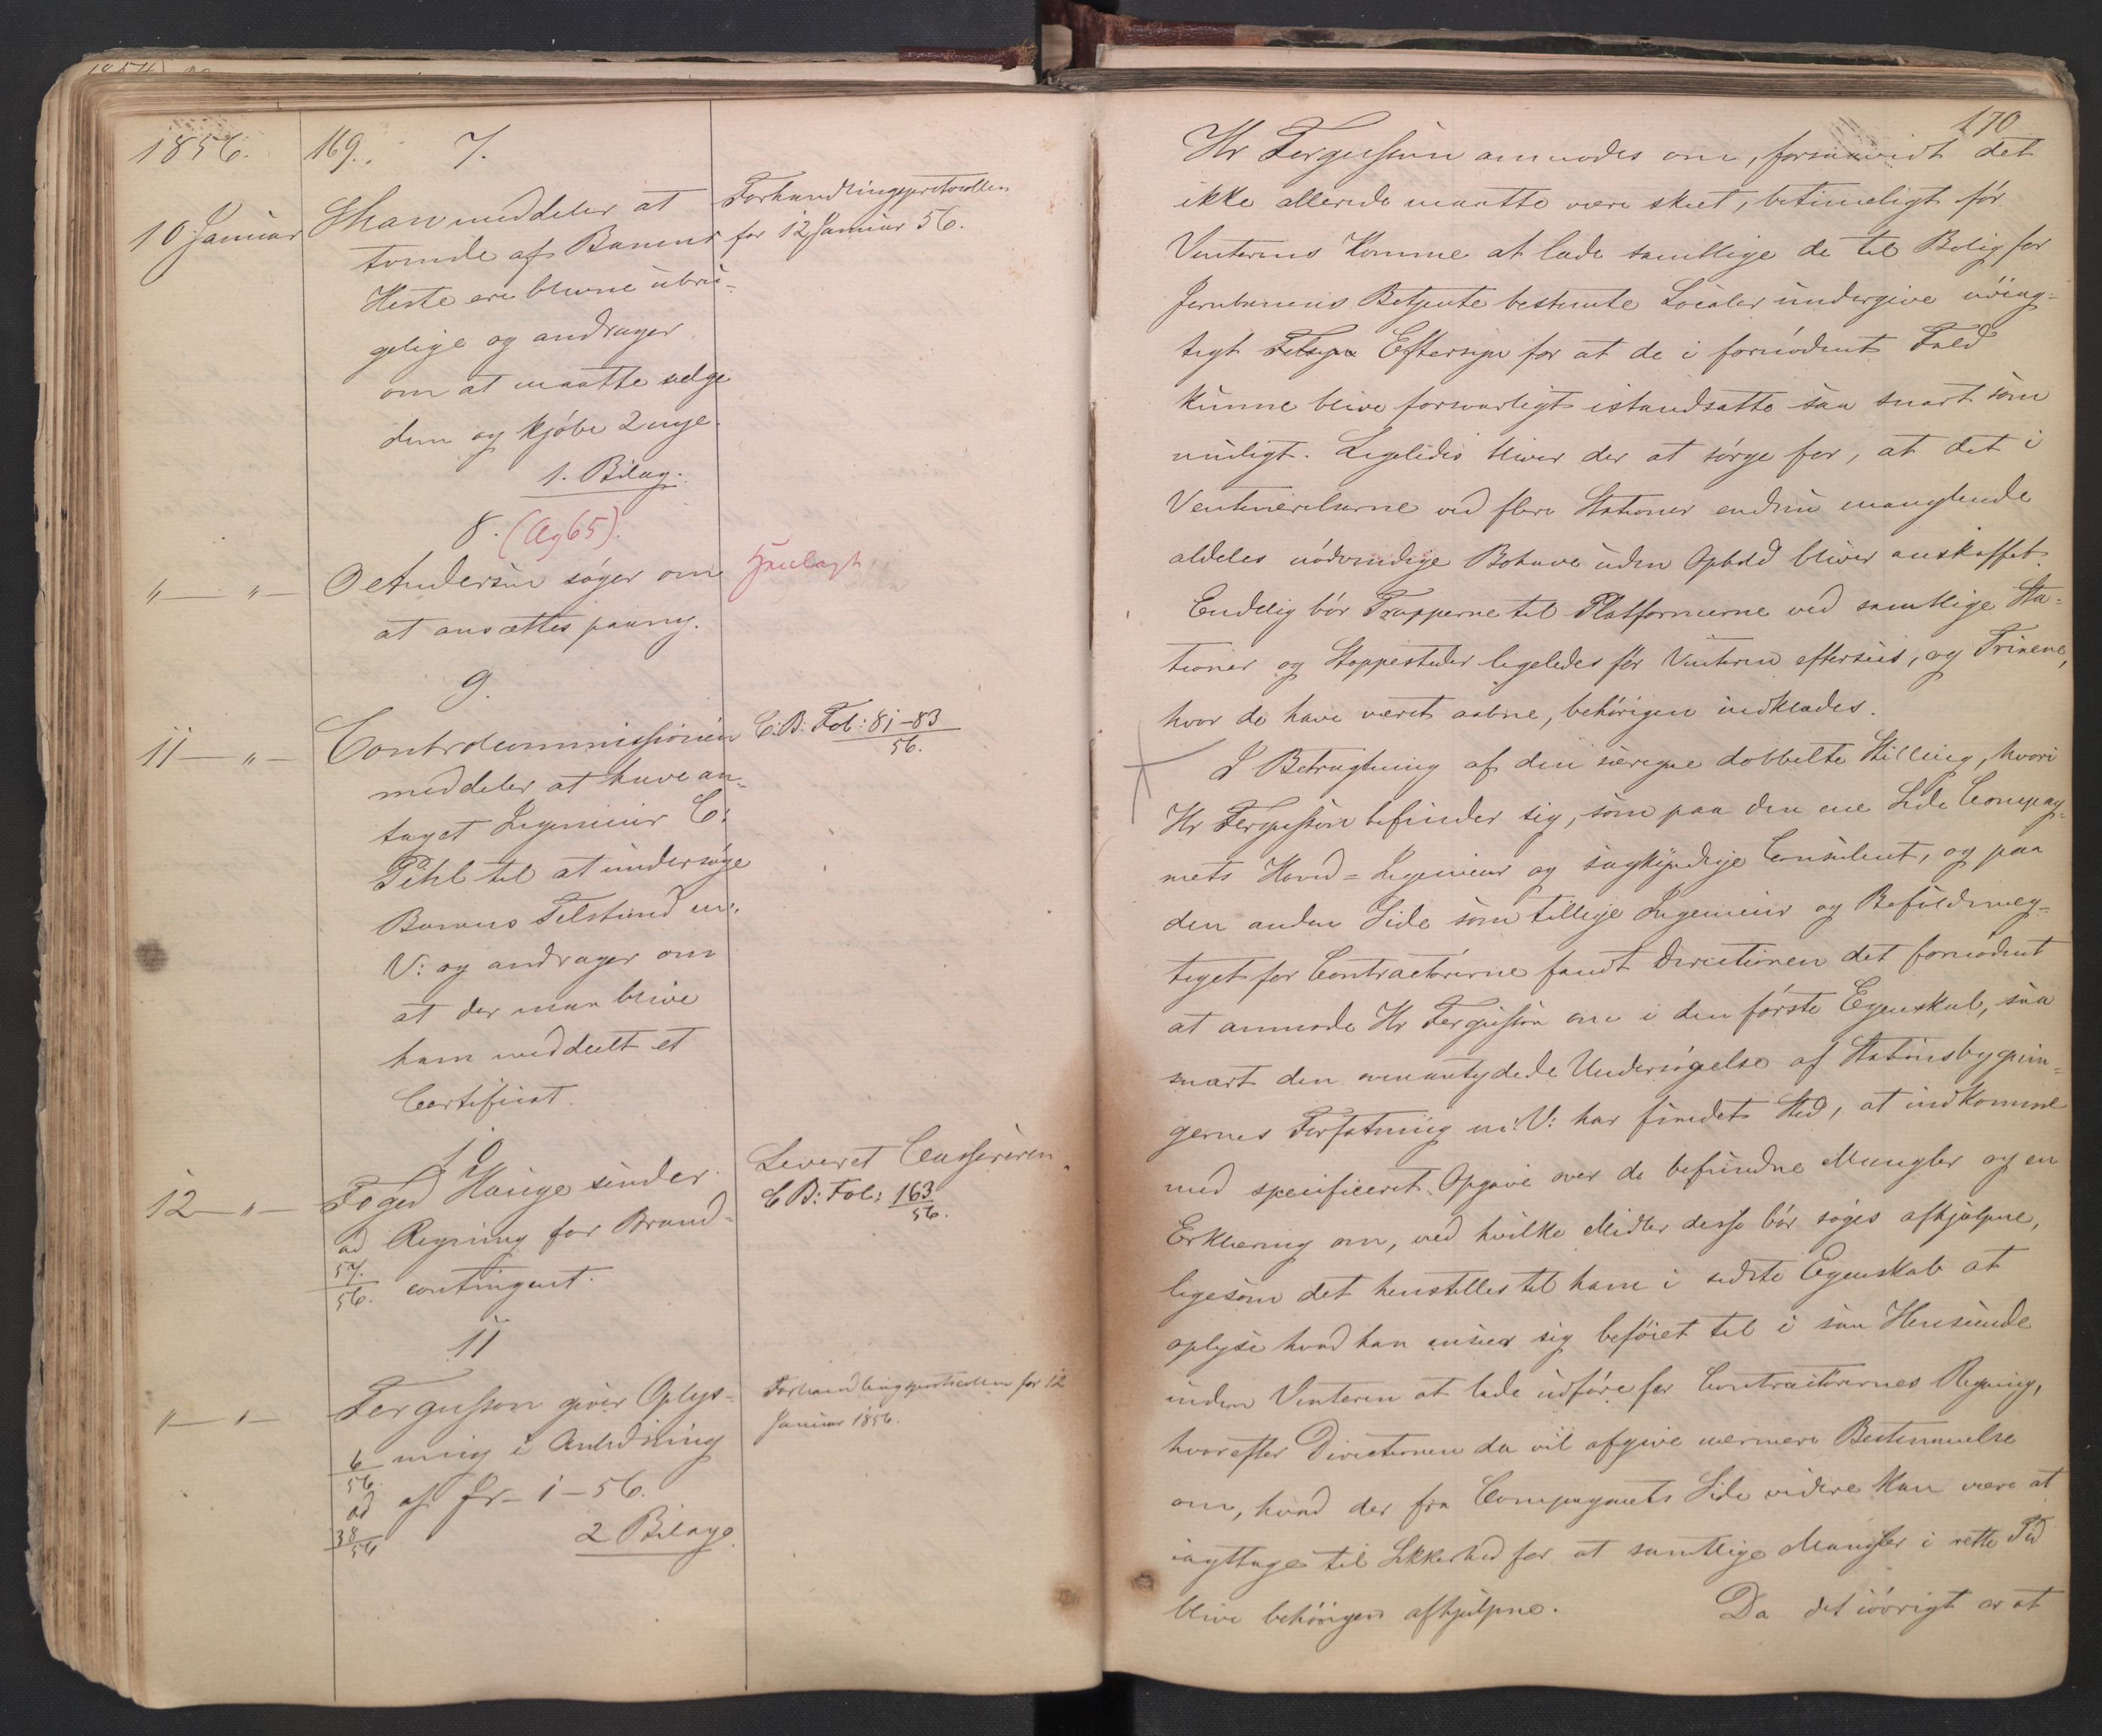 1856.
169.
7.
10 Januar
Shaw meddeler at
tvende af Banens
Heste ere blevne ubru-
gelige og andrager
om at maatte sælge
dem og kjøbe 2 nye.
1. Bilag.
Forhandlingsprotocollen
for 12 Januar 56.
8. (Ag 65).
" — " —
O Andersen søger om
at ansættes paany.
Henlagt
9.
11 — " —
Controlcommissionen
meddeler at have an-
taget Ingenieur C:
Pihl til at undersøge
Banens Tilstand m:
V: og andrager om
at der maa blive
ham meddeelt et
Certificat.
C. B: Fol: 81-83
56.
10
12 — " —
Foged Hauge sender
ad Regning for Brand-
57.
56. contingent.
Leveret Cassereren.
C B: Fol: 163
56.
11
" — " —
Fergusson giver Oplys-
6 ning i Anledning
56.
ad af Jr - 1 - 56.
38
56
2 Bilage.
Forhandlingsprotocollen for 12
Januar 1856.
170
Hr Fergusson anmodes om, forsaavidt det
ikke allerede maatte være skeet, betimeligt før
Vinterens Komme at lade samtlige de til Bolig for
Jernbanens Betjente bestemte Localer undergive nøiag-
tigt Tilsyn Eftersyn for at de i fornødent Fald
kunne blive forsvarligt istandsatte saa snart som
muligt. Ligeledes bliver der at sørge for, at det i
Venteværelserne ved flere Stationer endnu manglende
aldeles nødvendige Bohave uden Ophold bliver anskaffet.
Endelig bør Trapperne til Platformerne ved samtlige Sta-
tioner og Stoppesteder ligeledes før Vinteren eftersees, og Trinene,
hvor de have været aabne, behørigen indklædes.
I Betragtning af den særegne dobbelte Stilling, hvori
Hr Fergusson befinder sig, som paa den ene Side Compag-
niets Hoved-Ingenieur og sagkyndige Consulent, og paa
den anden Side som tillige Ingenieur og Befuldmæg-
tiget for Contractørerne fandt Directionen det fornødent
at anmode Hr Fergusson om i den første Egenskab, saa
snart den ovenantydede Undersøgelse af Stationsbygnin-
gernes Forfatning m: V: har fundet Sted, at indkomme
med specificeret Opgave over de befundne Mangler og en
Erklæring om, ved hvilke Midler disse bør søges afhjulpne,
ligesom det henstilles til ham i sidste Egenskab at
oplyse hvad han anseer sig beføiet til i saa Henseende
inden Vinteren at lade udføre for Contractørernes Regning,
hvorefter Directionen da vil afgive nærmere Bestemmelse
om, hvad der fra Compagniets Side videre kan være at
iagttage til Sikkerhed for at samtlige Mangler i rette Tid
blive behørigen afhjulpne. Da det iøvrigt er at